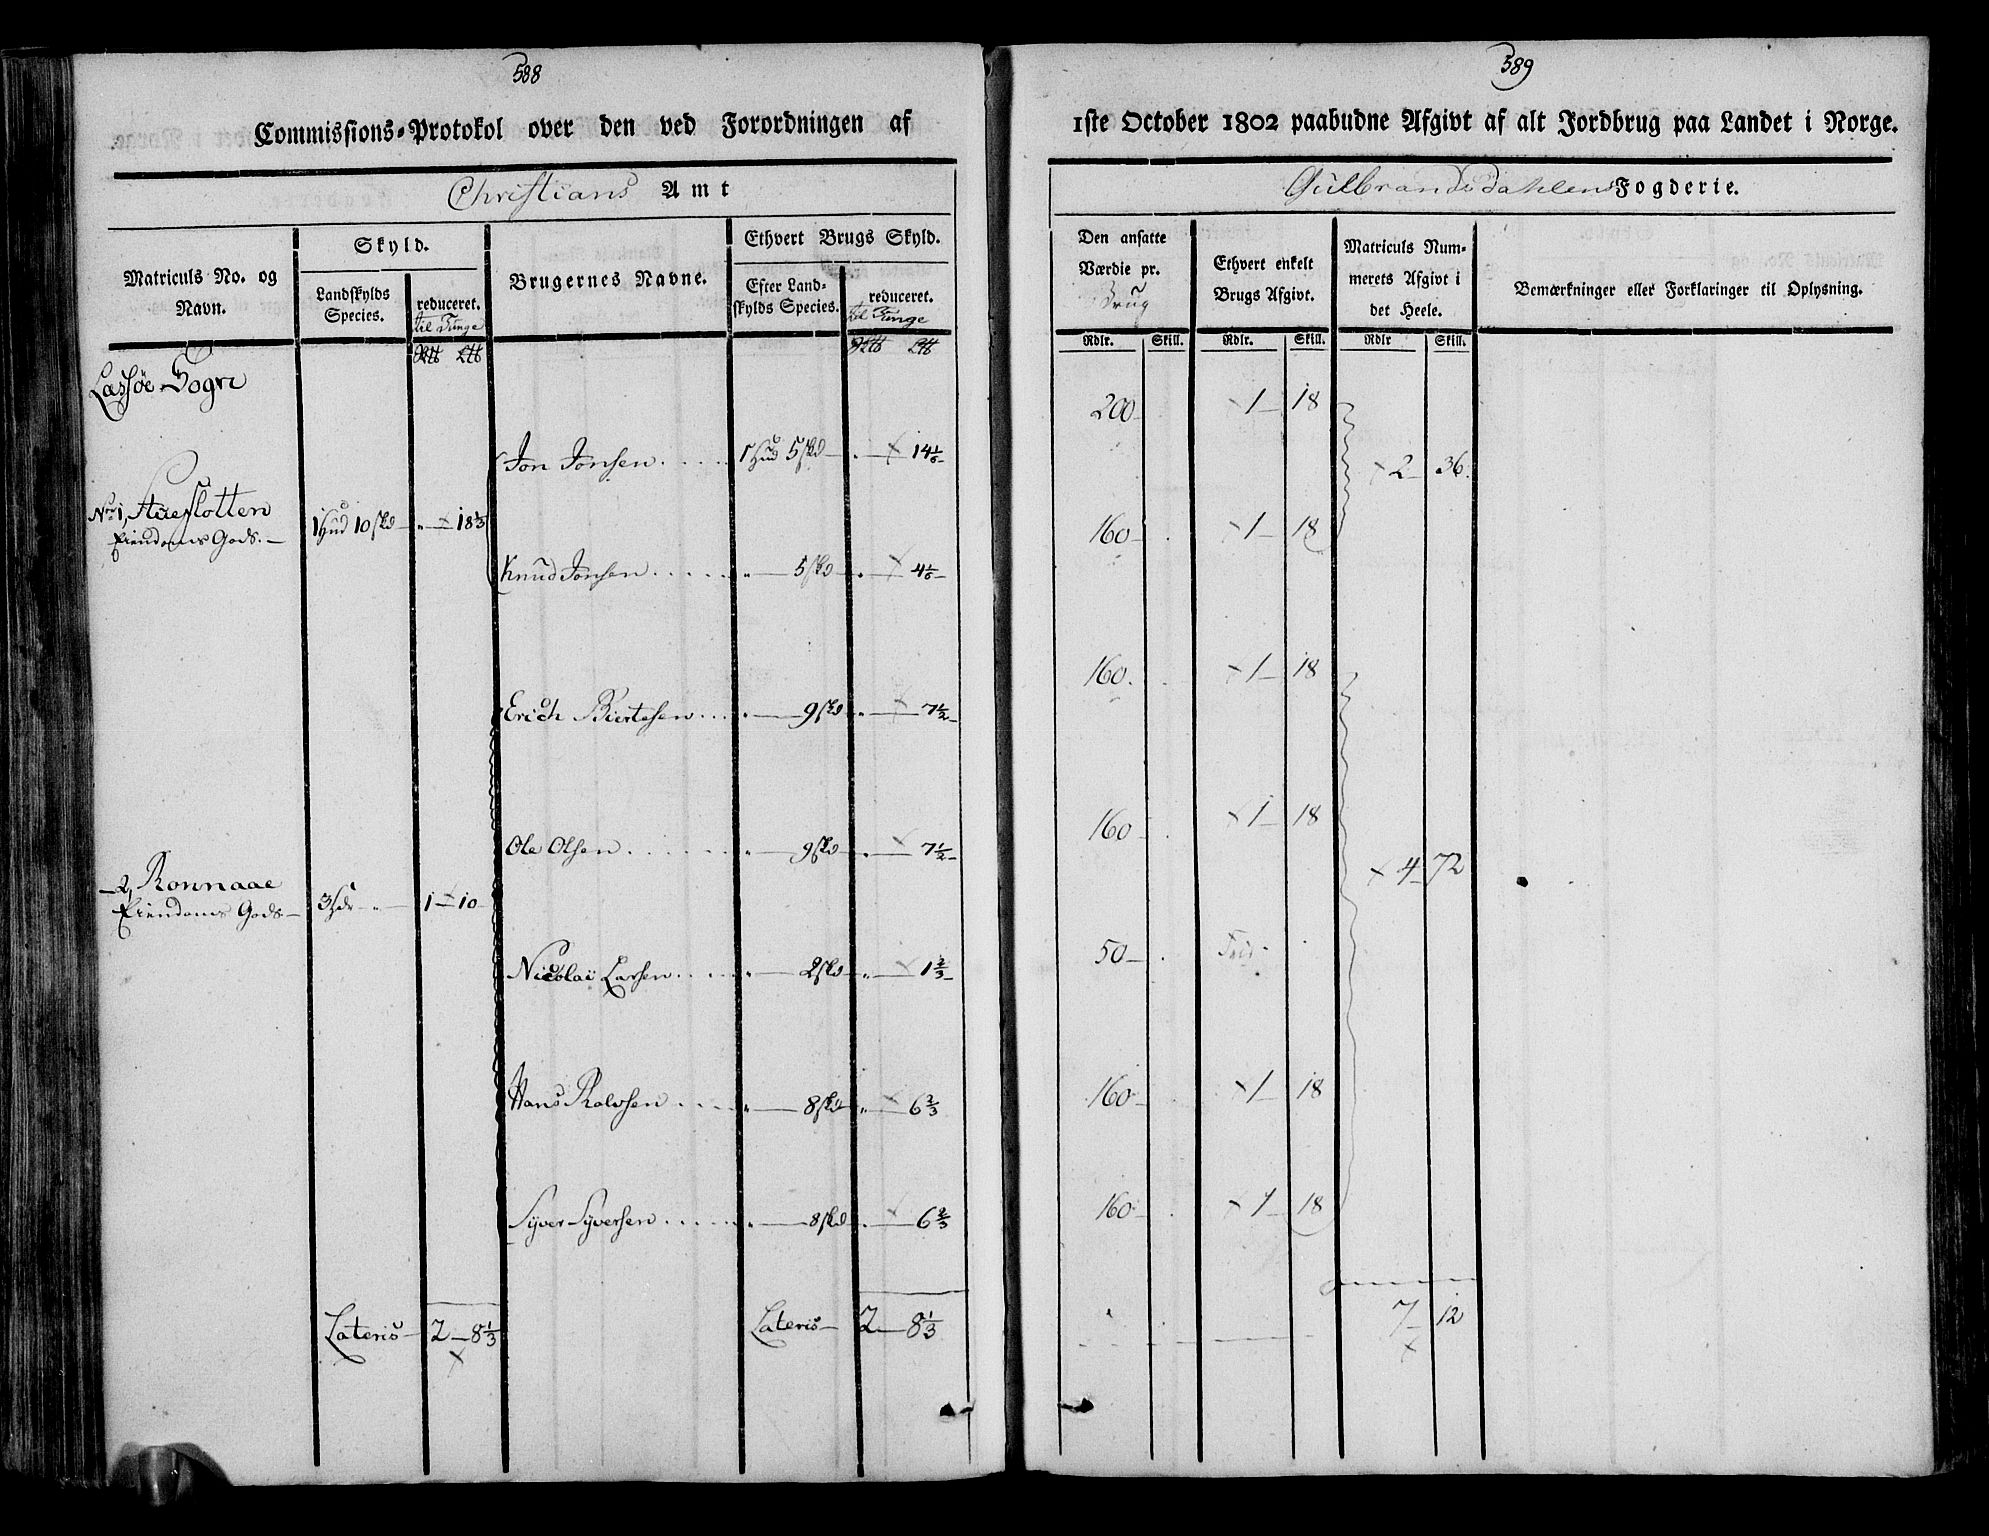 588
Commissions-Protokol over den ved Forordningen af
Christians Amt
Matriculs No. og Navn.
Skyld.
Landskylds Species.
reduceret.
til Tunge
Brugernes Navne.
Ethvert Brugs Skyld.
Efter Landskylds Species.
reduceret.
til Tunge
Lassøe Sogn
Jon Jonsen . . . . . 1 Hud 5 skd — 14 1/6
No 1, Aueslotten
Eiendoms Gods. — 1 Hud 10 skd — 18 1/3
Knud Jonsen . . . . . 5 skd — 4 1/6
Erich Biertesen . . . 9 skd — 7 1/2
Ole Olsen . . . . . 9 skd — 7 1/2
— 2, Ronnaae
Eiendoms Gods — 3 Hdr „ — 1 — 10
Nicolai Larsen . . . . 2 skd — 1 2/3
Hans Rolvsen . . . . 8 skd — 6 2/3
Syver Syversen . . . . 8 skd — 6 2/3
Lateris — 2 — 8 1/3
Lateris — 2 — 8 1/3
589
1ste October 1802 paabudne Afgivt af alt Jordbrug paa Landet i Norge.
Gulbrandsdahlens Fogderie.
Den ansatte Værdie pr.
Brug
Ethvert enkelt Brugs Afgivt.
Matriculs Nummerets Afgivt i det Heele.
Bemærkninger eller Forklaringer til Oplysning.
Rdlr. Skill. Rdlr. Skill. Rdlr Skill.
200 — 1 — 18
2 — 36
160 — 1 — 18
160 . 1 — 18
160 — 1 — 18
4 — 72
50 — Frii
160 — 1 — 18
160 1 — 18
7 — 12